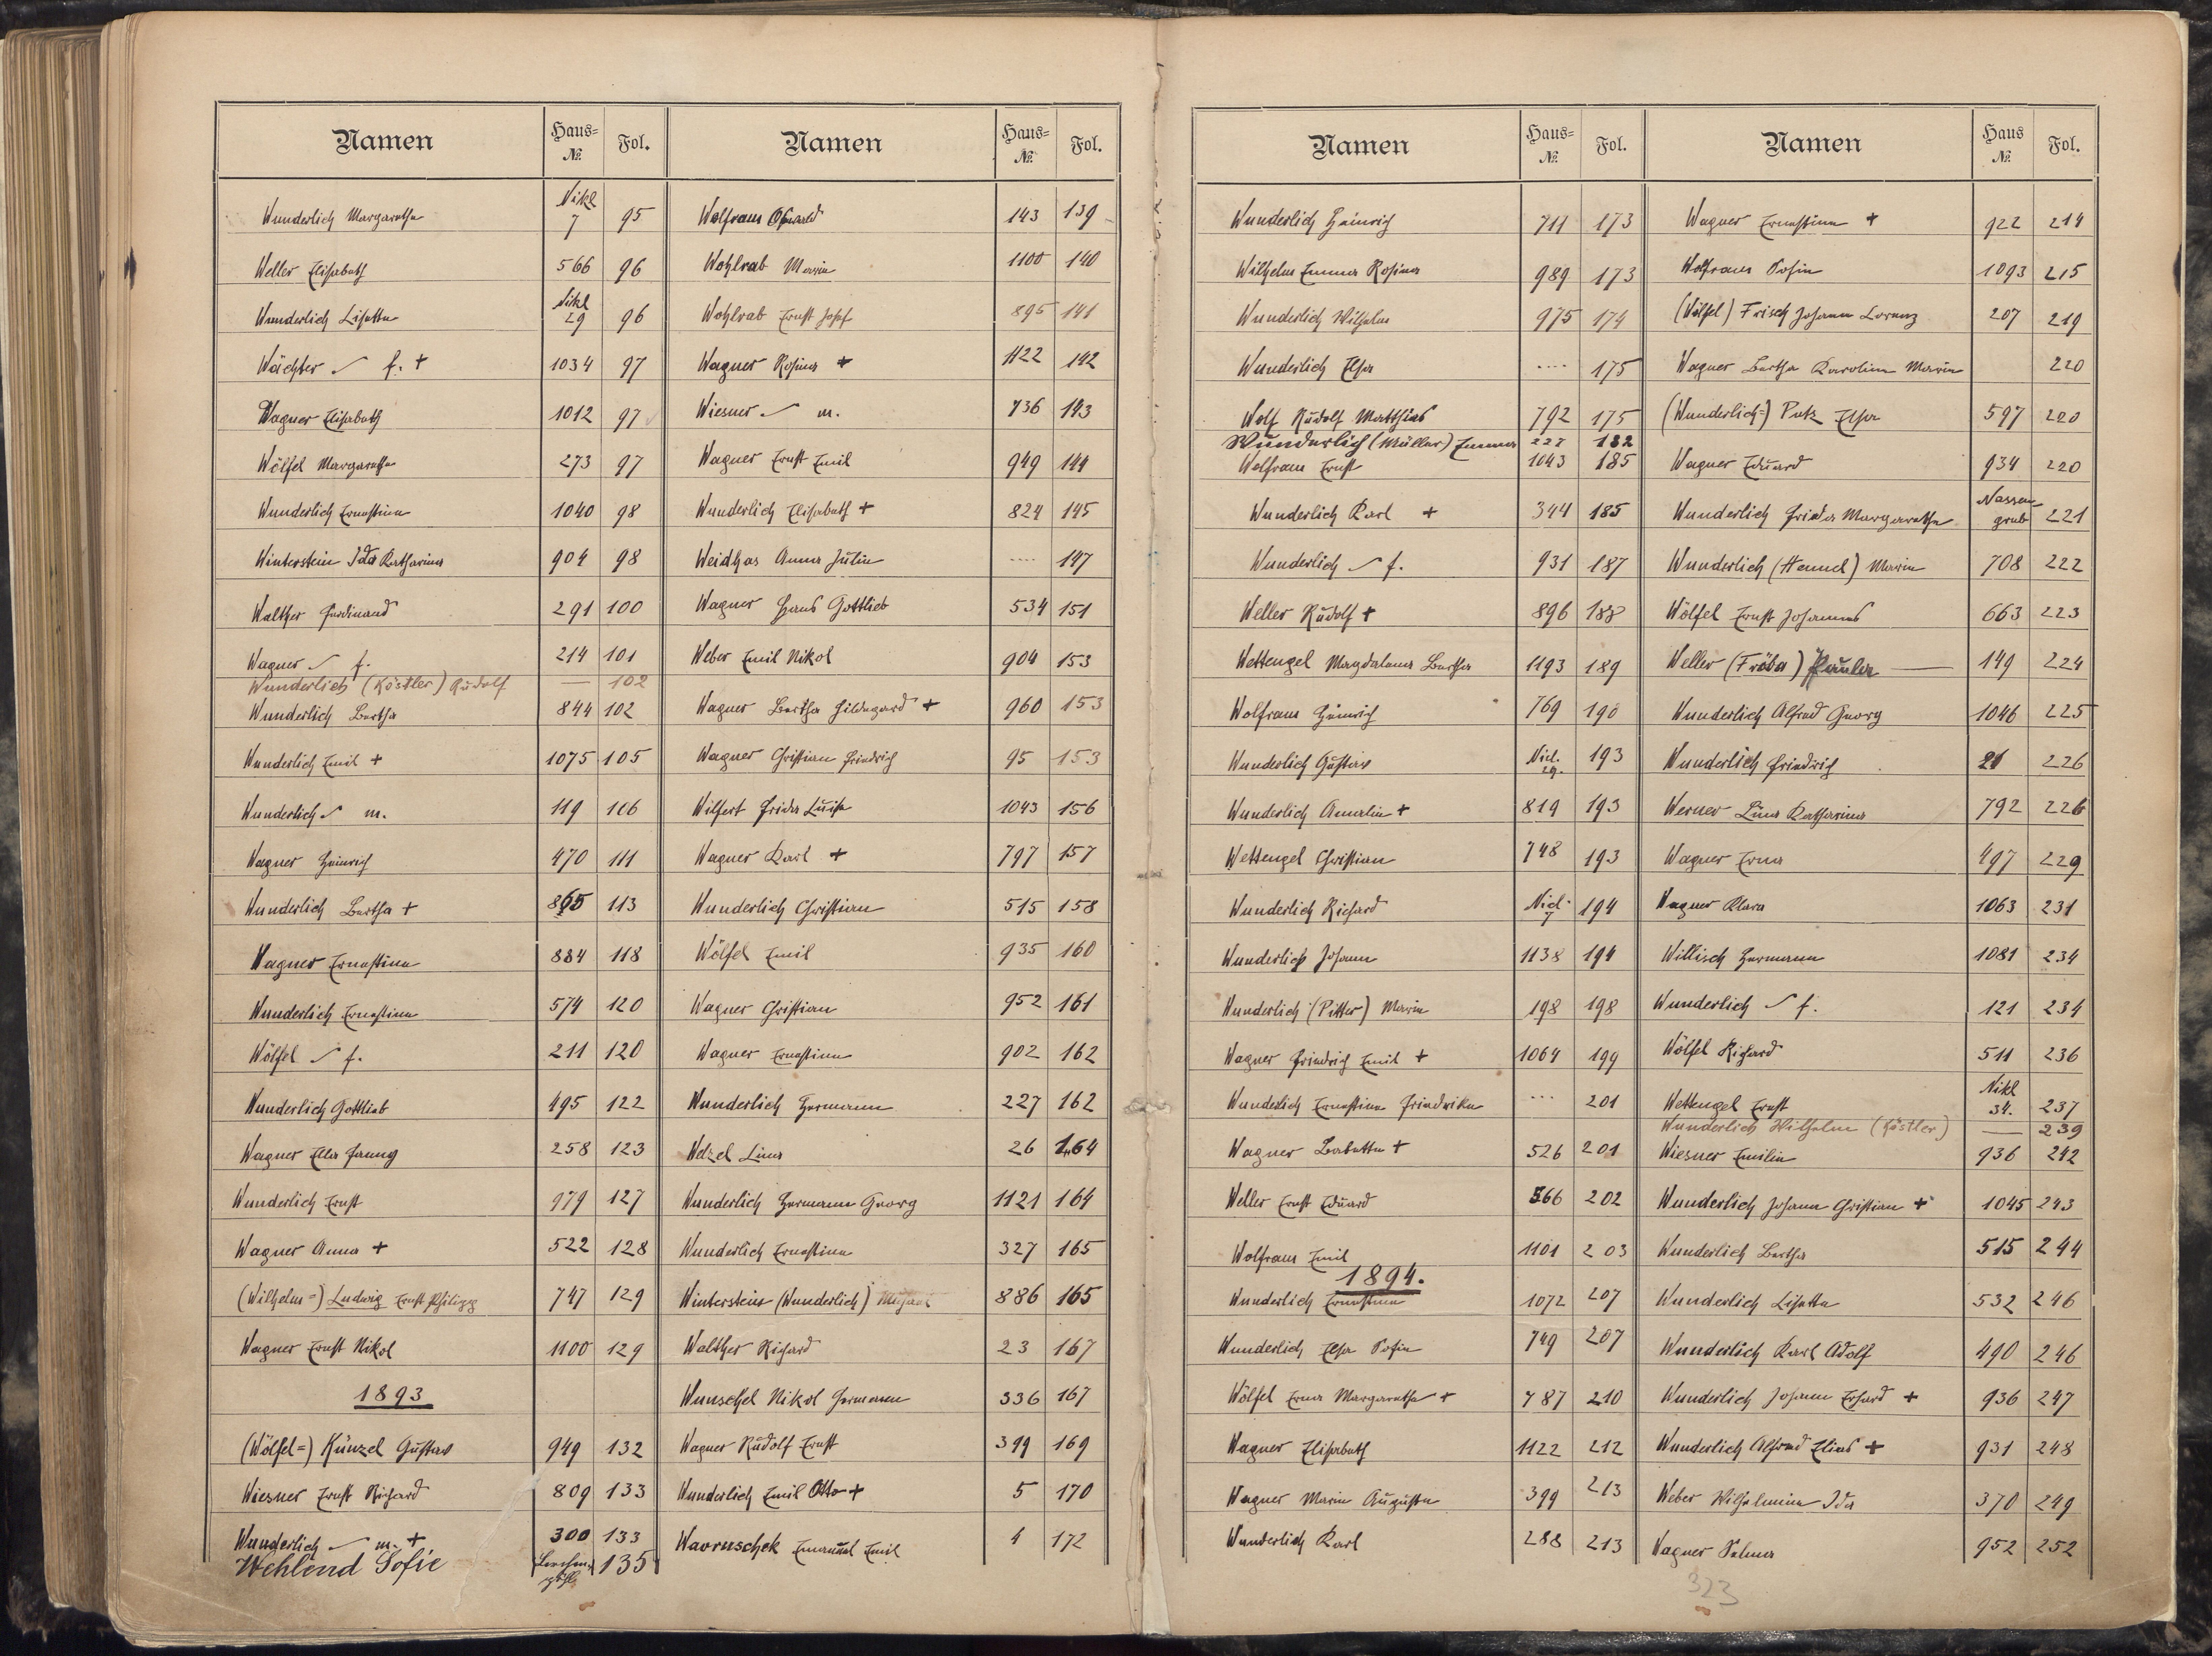 Namen Haus-№ Fol.
Wunderlich Margaretha Nikl 7 95
Weller Elisabeth 566 96
Wunderlich Lisetta Nikl 29 96
Wächter f. + 1034 97
Wagner Elisabeth 1012 97
Wölfel Margaretha 273 97
Wunderlich Ernestine 1040 98
Winterstein Ida Katharina 904 98
Walther Ferdinand 291 100
Wagner f. 214 101
Wunderlich (Köstler) Rudolf — 102
Wunderlich Bertha 844 102
Wunderlich Emil + 1075 105
Wunderlich m. 119 106
Wagner Heinrich 470 111
Wunderlich Bertha + 865 113
Wagner Ernestine 884 118
Wunderlich Ernestine 574 120
Wölfel f. 211 120
Wunderlich Gottlieb 495 122
Wagner Ella Fanny 258 123
Wunderlich Ernst 979 127
Wagner Anna + 522 128
(Wilhelm=) Ludwig Ernst Philipp 747 129
Wagner Ernst Nikol 1100 129
1893
(Wölfel=) Künzel Gustav 949 132
Wiesner Ernst Richard 809 133
Wunderlich m. + 300 133
Wehlend Sofie 135
Namen Haus-№ Fol.
Wolfram Oswald 143 139
Wohlrab Maria 1100 140
Wohlrab Ernst Josef 895 141
Wagner Rosina + 1122 142
Wiesner m. 736 143
Wagner Ernst Emil 949 144
Wunderlich Elisabeth + 824 145
Weidhas Anna Julie .... 147
Wagner Hans Gottlieb 534 151
Weber Emil Nikol 904 153
Wagner Bertha Hildegard + 960 153
Wagner Christian Friedrich 95 153
Wilfert Frida Luise 1043 156
Wagner Karl + 797 157
Wunderlich Christian 515 158
Wölfel Emil 935 160
Wagner Christian 952 161
Wagner Ernestine 902 162
Wunderlich Hermann 227 162
Welzel Lina 26 164
Wunderlich Hermann Georg 1121 164
Wunderlich Ernestine 327 165
Winterstein (Wunderlich) 886 165
Walther Richard 23 167
Wunschel Nikol Hermann 336 167
Wagner Rudolf Ernst 399 169
Wunderlich Emil Otto + 5 170
Wavruschek Emanuel Emil 4 172
Namen Haus-№ Fol.
Wunderlich Heinrich 711 173
Wilhelm Emma Rosina 989 173
Wunderlich Wilhelm 975 174
Wunderlich Elsa .... 175
Wolf Rudolf Matthias 792 175
Wunderlich (Müller) Emma 227 182
Wolfram Ernst 1043 185
Wunderlich Karl + 344 185
Wunderlich f. 931 187
Weller Rudolf + 896 188
Wettengel Magdalena Bertha 1193 189
Wolfram Heinrich 769 190
Wunderlich Gustav Nicl. 29. 193
Wunderlich Amalie + 819 193
Wettengel Christian 748 193
Wunderlich Richard Nicl. 7 194
Wunderlich Johann 1138 194
Wunderlich (Pitter) Maria 198 198
Wagner Friedrich Emil + 1064 199
Wunderlich Ernestine Friedrika ... 201
Wagner Babetta + 526 201
Weller Ernst Eduard 566 202
Wolfram Emil 1101 203
1894.
Wunderlich Ernestine 1072 207
Wunderlich Elsa Sofie 749 207
Wölfel Erna Margaretha + 787 210
Wagner Elisabeth 1122 212
Wagner Maria Augusta 399 213
Wunderlich Karl 288 213
Namen Haus № Fol.
Wagner Ernestine + 922 214
Wolfram Sofie 1093 215
(Wölfel) Frisch Johann Lorenz 207 219
Wagner Bertha Karolina Maria 220
(Wunderlich=) Putz Elsa 597 220
Wagner Eduard 934 220
Wunderlich Frida Margaretha Nassengrub 221
Wunderlich (Hennel) Maria 708 222
Wölfel Ernst Johannes 663 223
Weller (Fröba) Paula — 149 224
Wunderlich Alfred Georg 1046 225
Wunderlich Friedrich 21 226
Werner Lina Katharina 792 226
Wagner Erna 497 229
Wagner Klara 1063 231
Willisch Hermann 1081 234
Wunderlich f. 121 234
Wölfel Richard 511 236
Wettengel Ernst Nikl 34. 237
Wunderlich Wilhelm (Köstler) — 239
Wiesner Emilie 936 242
Wunderlich Johann Christian + 1045 243
Wunderlich Bertha 515 244
Wunderlich Lisetta 532 246
Wunderlich Karl Adolf 490 246
Wunderlich Johann Erhard + 936 247
Wunderlich Alfred Elias + 931 248
Weber Wilhelmine Ida 370 249
Wagner Selma 952 252
323